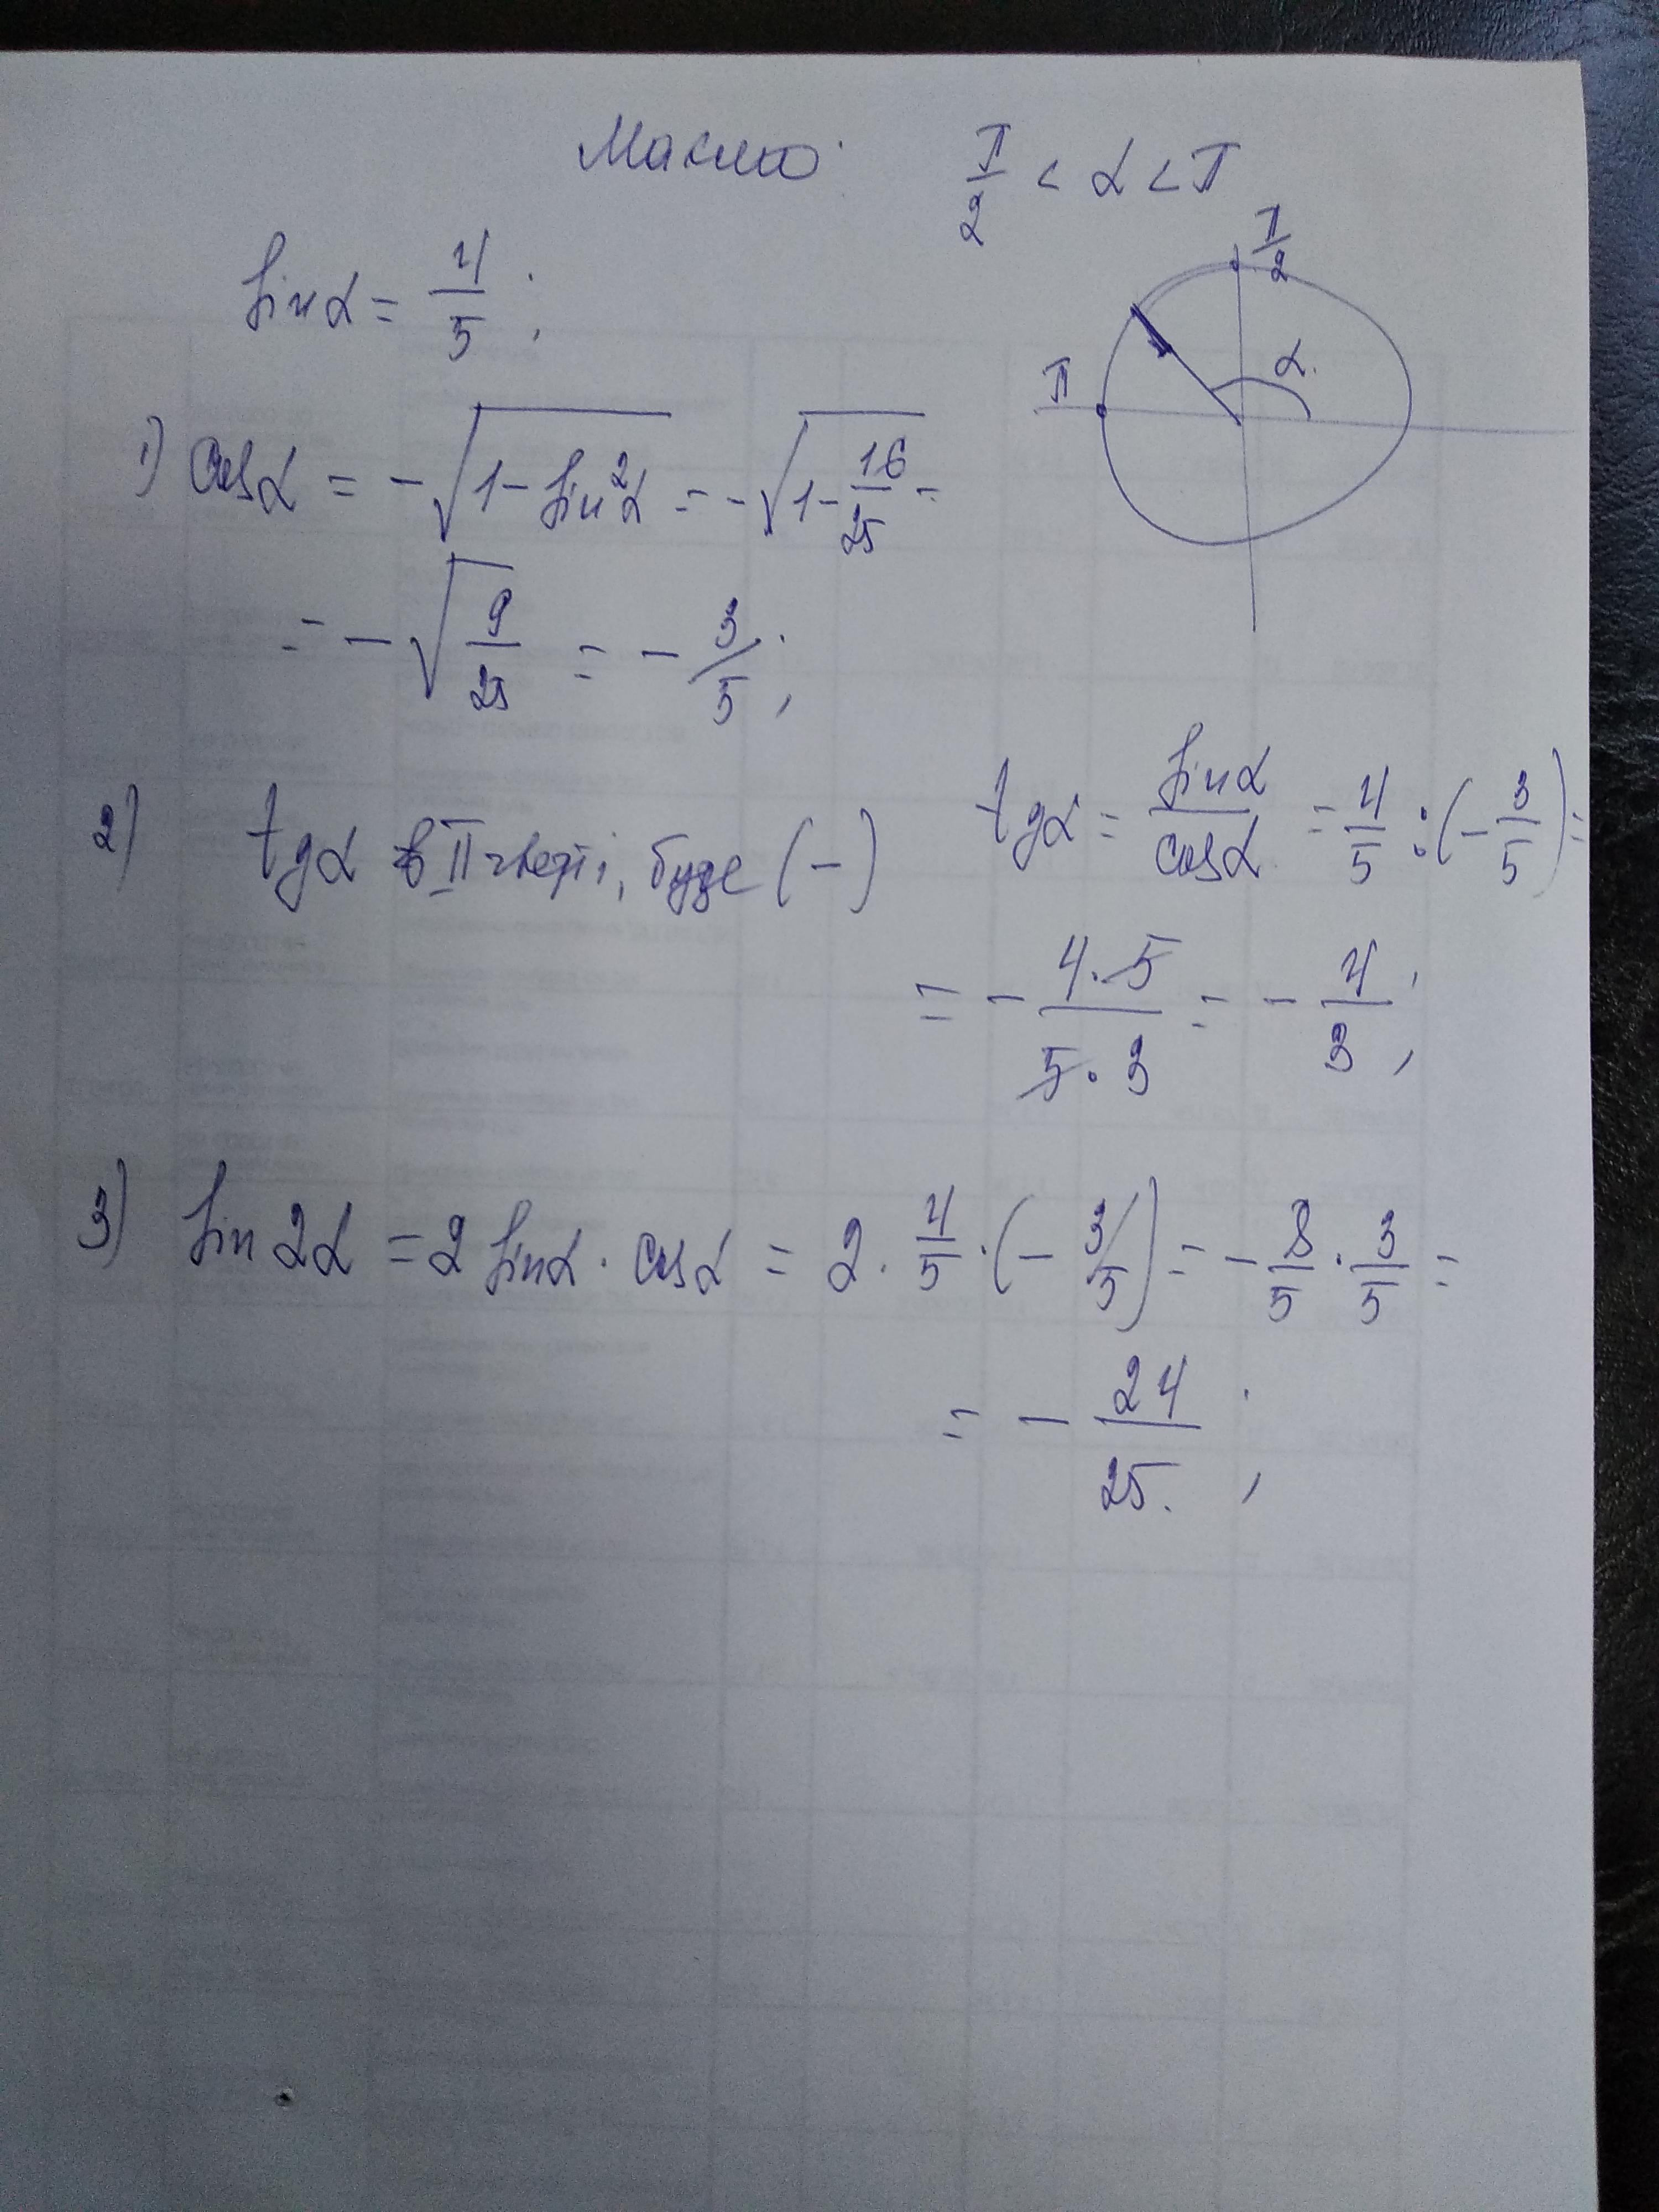 Маємо: π/2 < α < π
sinα = 4/5;
π/2
π
α
1) cosα = -√(1-sin²α) = -√(1-16/25) =
= -√(9/25) = -3/5;
2) tgα в II чверті, буде (-) tgα = sinα/cosα = 4/5 : (-3/5) =
= - 4·5/5·3 = - 4/3;
3) sin2α = 2sinα · cosα = 2 · 4/5 · (-3/5) = - 8/5 · 3/5 =
= - 24/25;